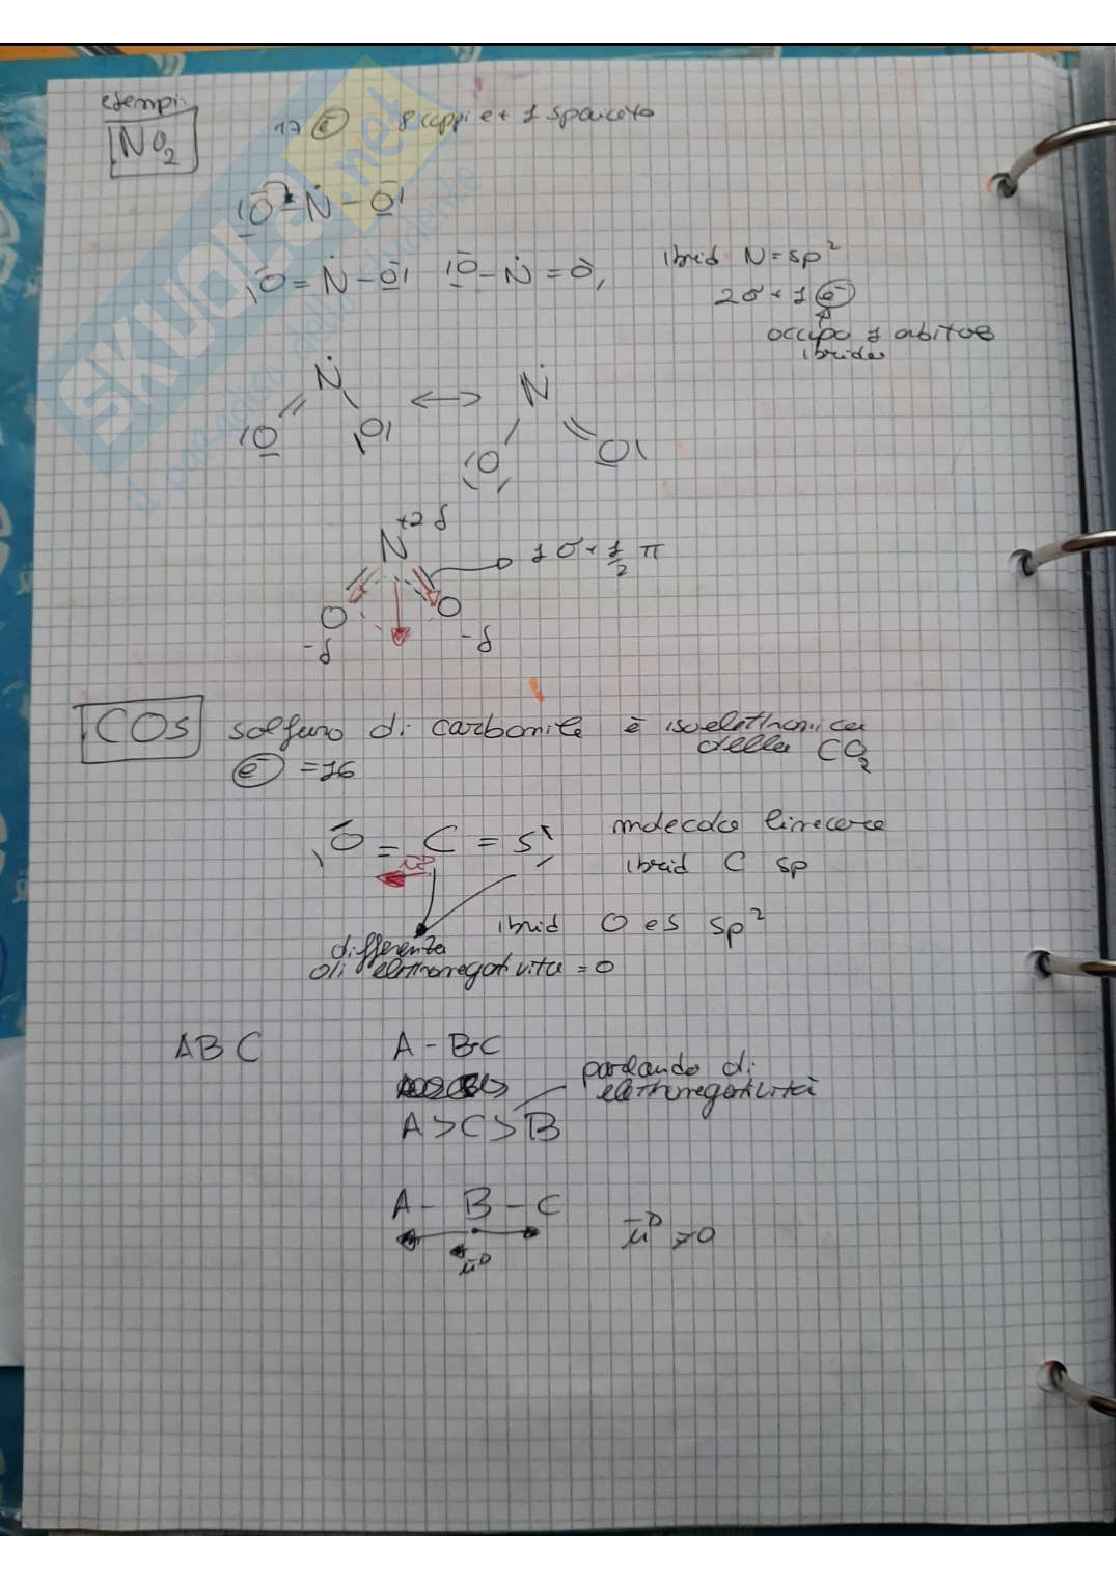 esempi
NO₂
17 e⁻ 8 coppie + 1 spaiato
|O̅ - N - O̅|
|O = N - O| |O - N = O|
ibrid N = sp²
2σ + 1 e⁻
occupa 1 orbitale
ibrido
N ⟷ N
|O O| |O O|
+2δ
N
1σ + 1/2 π
O O
-δ -δ
COS solfuro di carbonile è isoelettronica
della CO₂
e⁻ = 16
O = C = S molecola lineare
μᴰ
ibrid C sp
ibrid O e S sp²
differenza
di elettronegatività = 0
ABC A - B - C
parlando di
elettronegatività
A > C > B
A - B - C
μᴰ
μᴰ ≠ 0
SKUOLA.net